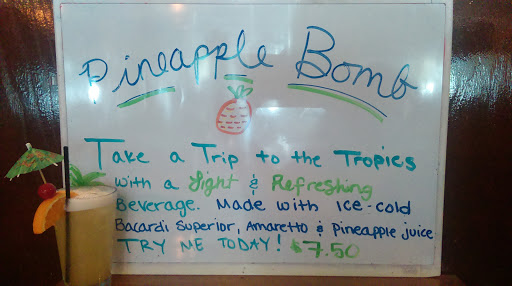 Pineapple Bomb
Take a Trip to the Tropics
with a Light & Refreshing
Beverage. Made with ice-cold
Bacardi Superior, Amaretto & Pineapple juice
TRY ME TODAY! $7.50